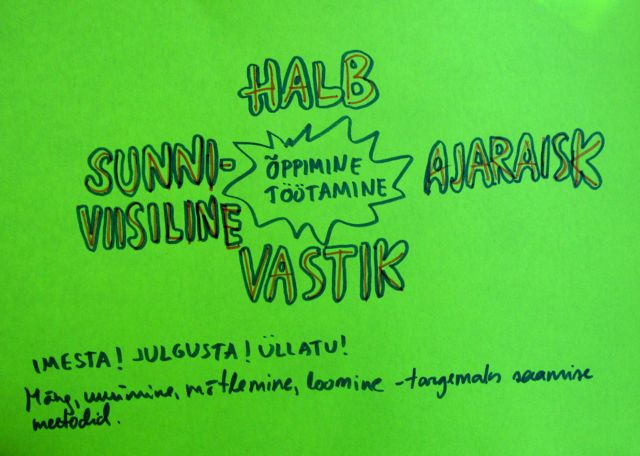 HALB
SUNNI-
VIISILINE
ÕPPIMINE
TÖÖTAMINE
AJARAISK
VASTIK
IMESTA! JULGUSTA! ÜLLATU!
Mäng, uurimine, mõtlemine, loomine - targemaks saamise
meetodid.